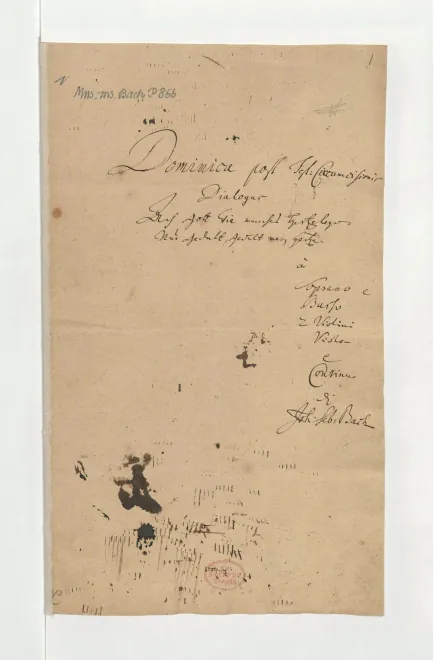 1
Mus. ms. Bach P 866
Dominica post Fest. Circumcisionis
Dialogus
Ach Gott, wie manches Hertzeleyd
Nur Gedult, Gedult mein Hertze
à
Soprano e
Basso
2 Violini
Viola
e
Continuo
di
Joh: Seb: Bach